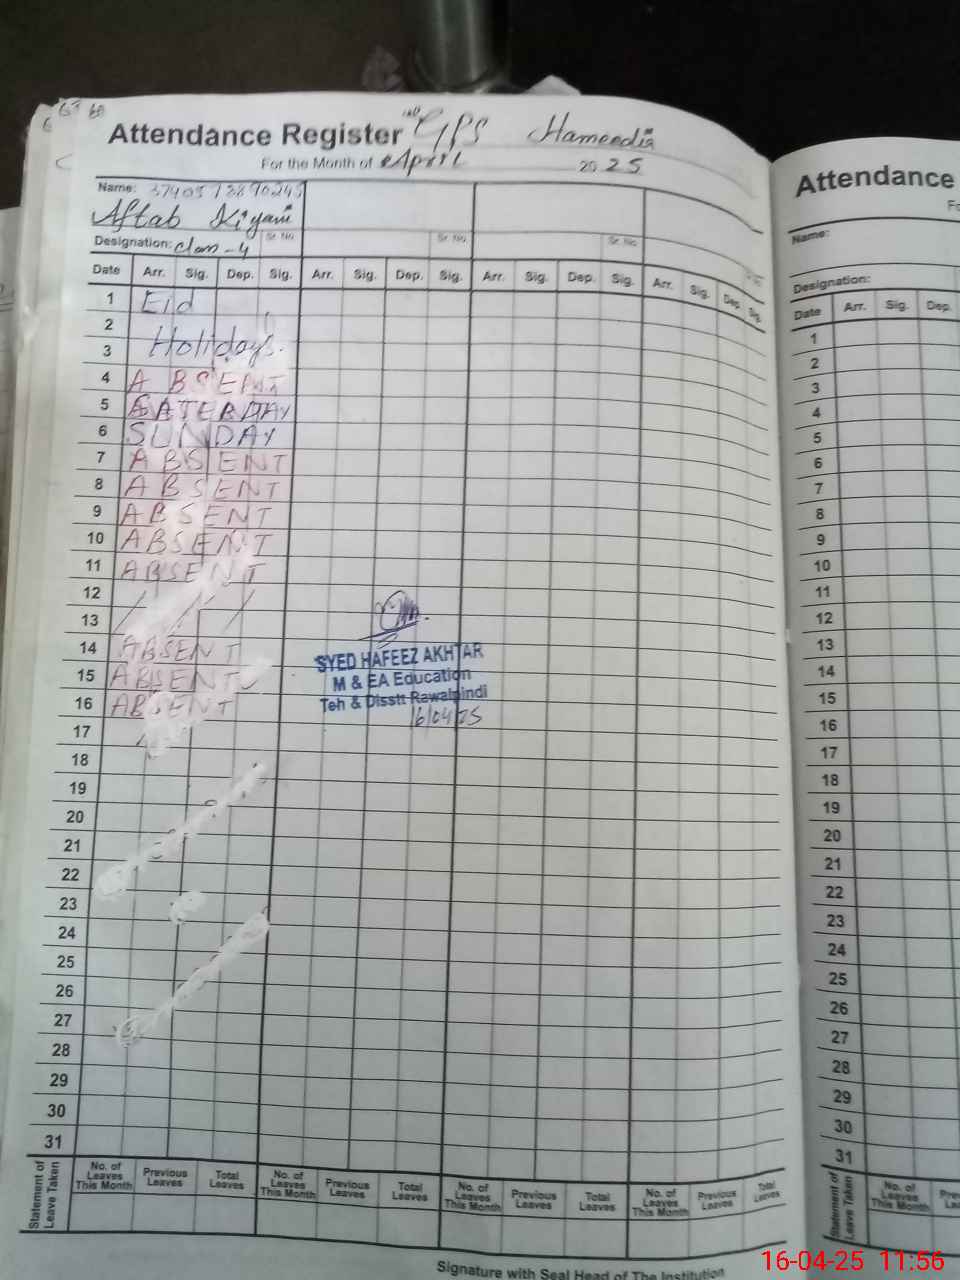 Attendance Register GPS Hameedia
For the Month of April 2025
Name:
Aftab Kiyani
Designation: Class-4 Sr. No Sr. No Sr. No
Date Arr. Sig. Dep. Sig. Arr. Sig. Dep. Sig. Arr. Sig. Dep. Sig. Arr. Sig. Dep. Sig.
1 Eid
2
3 Holidays.
4 ABSENT
5 SATERDAY
6 SUNDAY
7 ABSENT
8 ABSENT
9 ABSENT
10 ABSENT
11 ABSENT
12
13
14 ABSENT
15 ABSENT
16 ABSENT
17
18
19
20
21
22
23
24
25
26
27
28
29
30
31
SYED HAFEEZ AKHTAR
M & EA Education
Teh & Disstt Rawalpindi
16/04/25
Statement of Leave Taken
No. of Leaves This Month Previous Leaves Total Leaves No. of Leaves This Month Previous Leaves Total Leaves No. of Leaves This Month Previous Leaves Total Leaves No. of Leaves This Month Previous Leaves Total Leaves
Signature with Seal Head of The Institution
Attendance
Name:
Designation:
Date Arr. Sig. Dep.
1
2
3
4
5
6
7
8
9
10
11
12
13
14
15
16
17
18
19
20
21
22
23
24
25
26
27
28
29
30
31
Statement of Leave Taken
No. of Leaves This Month
16-04-25 11:56